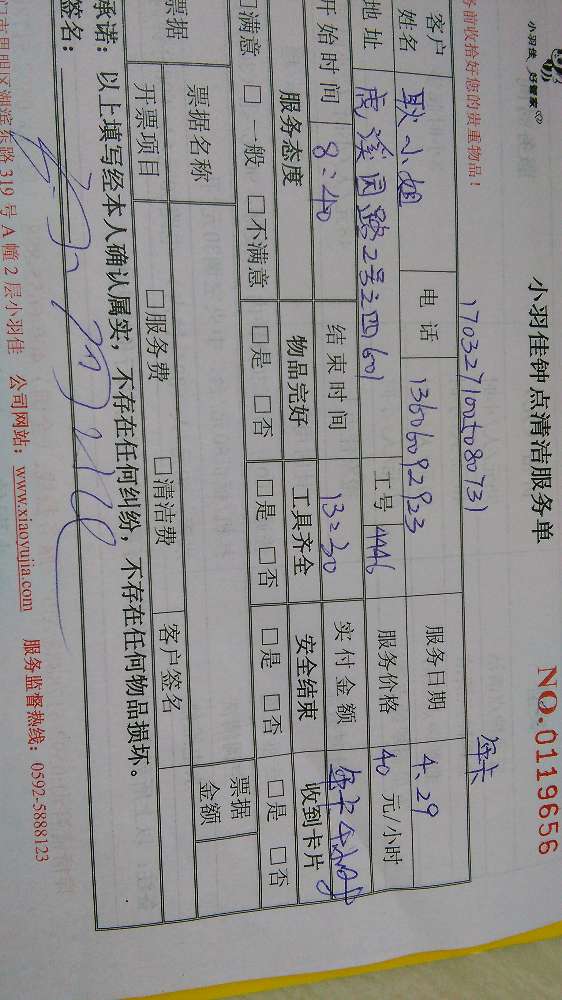 小羽佳 好管家
小羽佳钟点清洁服务单
NO.0119656
务前收拾好您的贵重物品!
1703271005080731
年卡
客户姓名 耿小姐 电话 13606092923 服务日期 4.29
地址 虎溪园路2号之四601 工号 4446 服务价格 40 元/小时
开始时间 8:40 结束时间 13:30 实付金额 年卡4小时
服务态度 物品完好 工具齐全 安全结束 收到卡片
□满意 □一般 □不满意 □是 □否 □是 □否 □是 □否 □是 □否
票据 票据名称 票据金额
开票项目 □服务费 □清洁费 客户签名
承诺:以上填写经本人确认属实,不存在任何纠纷,不存在任何物品损坏。
签名:
门市思明区湖滨东路 319 号 A 幢 2 层小羽佳 公司网站:www.xiaoyujia.com 服务监督热线:0592-5888123